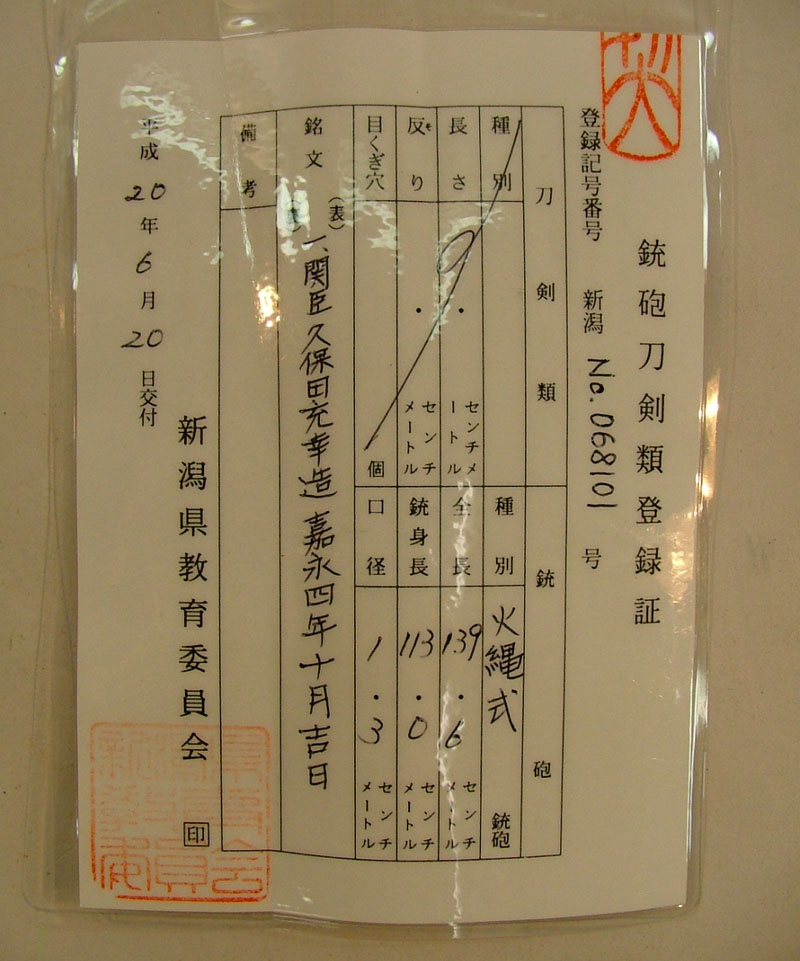 銃砲刀剣類登録証
登録記号番号 新潟 No.068101 号
刀剣類
種別
長さ ・ センチメートル
反り ・ センチメートル
目くぎ穴 個
銃砲
種別 火縄式 銃砲
全長 139・6 センチメートル
銃身長 113・0 センチメートル
口径 1・3 センチメートル
銘文 (表) 一、関臣久保田充幸造 嘉永四年十月吉日
備考
平成20年6月20日交付
新潟県教育委員会 印